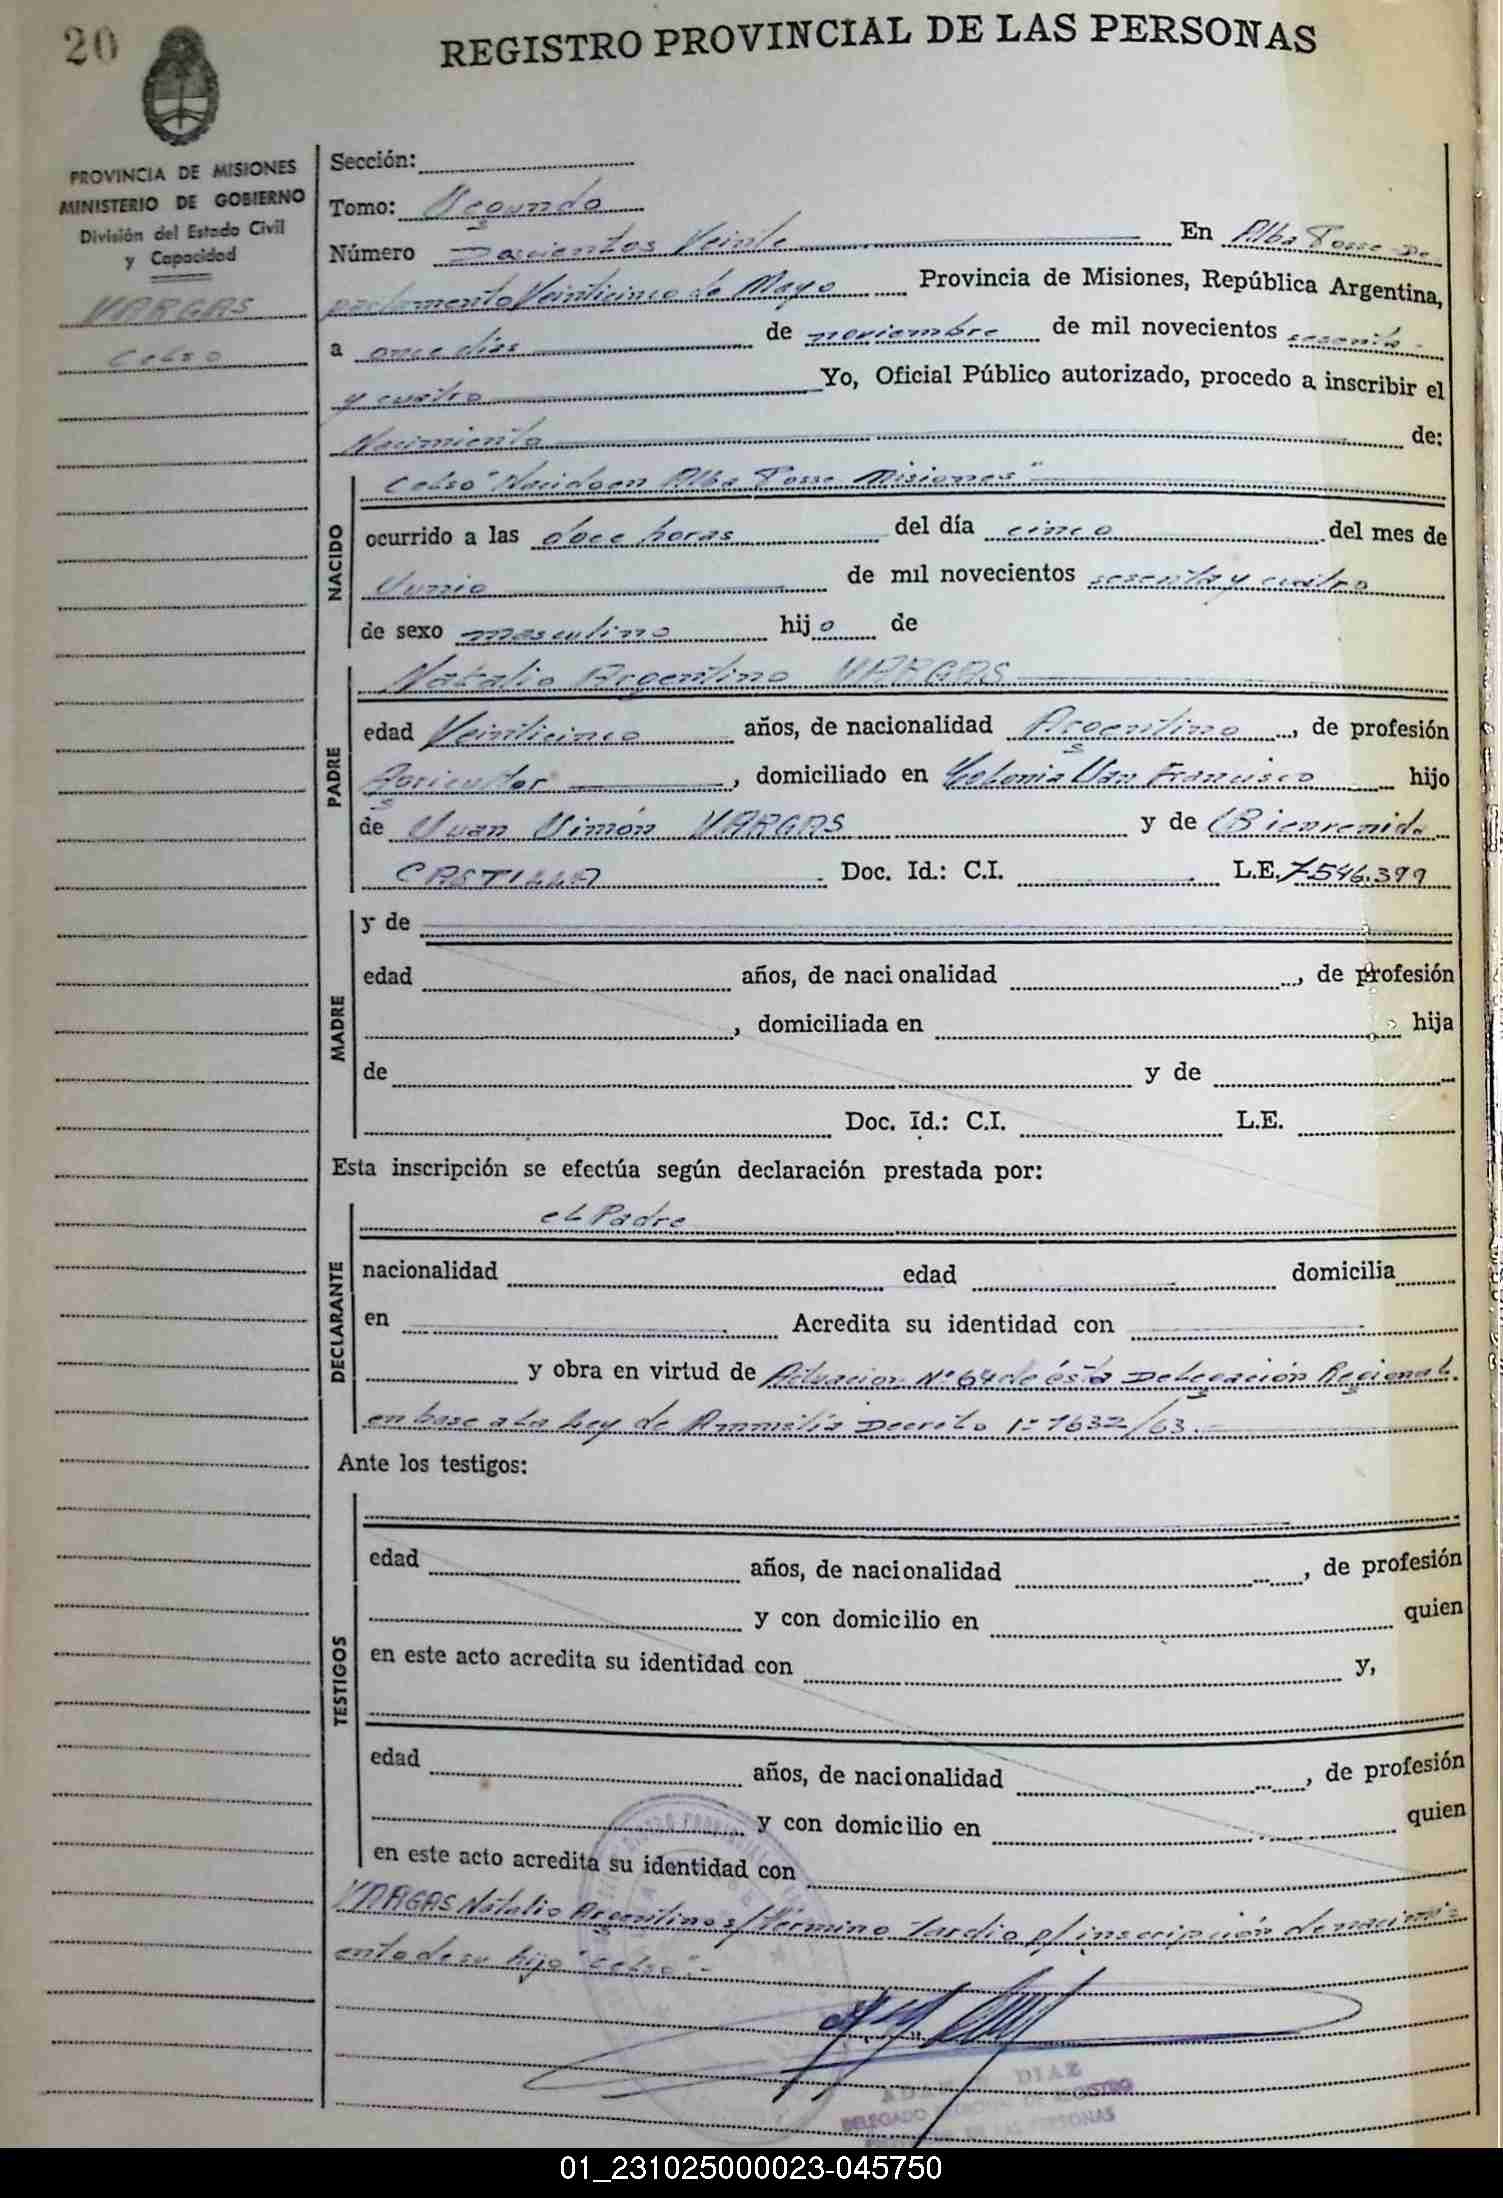 20
REGISTRO PROVINCIAL DE LAS PERSONAS
PROVINCIA DE MISIONES
MINISTERIO DE GOBIERNO
División del Estado Civil
y Capacidad
VARGAS
Celso
Sección:
Tomo: Segundo
Número Doscientos Veinte En Alba Posse De
partamento Veinticinco de Mayo Provincia de Misiones, República Argentina,
a once dias de noviembre de mil novecientos sesenta
y cuatro Yo, Oficial Público autorizado, procedo a inscribir el
Nacimiento de:
NACIDO
Celso "Nacido en Alba Posse Misiones"
ocurrido a las doce horas del día cinco del mes de
Junio de mil novecientos sesenta y cuatro
de sexo masculino hijo de
PADRE
Natalio Argentino VARGAS
edad Veinticinco años, de nacionalidad Argentino, de profesión
Agricultor, domiciliado en Colonia San Francisco hijo
de Juan Simón VARGAS y de Bienvenida
CASTILLO Doc. Id.: C.I. L.E. 7.546.399
MADRE
y de
edad años, de nacionalidad , de profesión
, domiciliada en hija
de y de
Doc. Id.: C.I. L.E.
Esta inscripción se efectúa según declaración prestada por:
DECLARANTE
el Padre
nacionalidad edad domicilia
en Acredita su identidad con
y obra en virtud de Actuacion Nº 64 de ésta Delegación Regional
en base a la Ley de Amnistía Decreto 1632/63.
Ante los testigos:
TESTIGOS
edad años, de nacionalidad , de profesión
y con domicilio en quien
en este acto acredita su identidad con y,
edad años, de nacionalidad , de profesión
y con domicilio en quien
en este acto acredita su identidad con
VARGAS Natalio Argentino s/Término Tardio p/inscripción de nacimi
ento de su hijo "Celso".-
DIAZ
DELEGADO REGIONAL DE REGISTRO
DE LAS PERSONAS
01_231025000023-045750